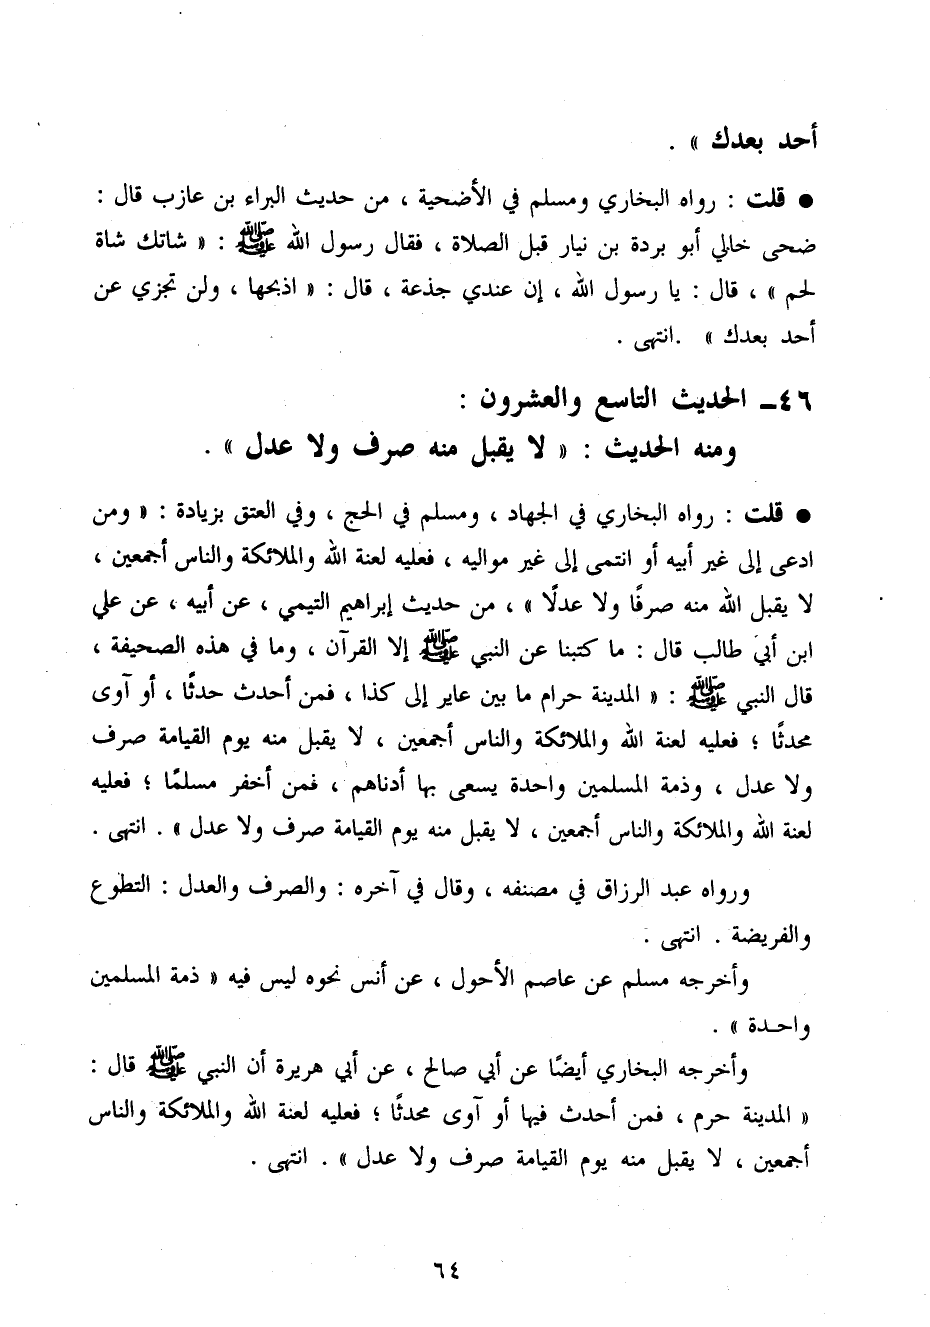 أحد بعدك » .
● قلت : رواه البخاري ومسلم في الأضحية ، من حديث البراء بن عازب قال :
ضحى خالي أبو بردة بن نيار قبل الصلاة ، فقال رسول الله ﷺ : « شاتك شاة
لحم » ، قال : يا رسول الله ، إن عندي جذعة ، قال : « اذبحها ، ولن تجزي عن
أحد بعدك » .انتهى .
٤٦ـ الحديث التاسع والعشرون :
ومنه الحديث : « لا يقبل منه صرف ولا عدل » .
● قلت : رواه البخاري في الجهاد ، ومسلم في الحج ، وفي العتق بزيادة : « ومن
ادعى إلى غير أبيه أو انتمى إلى غير مواليه ، فعليه لعنة الله والملائكة والناس أجمعين ،
لا يقبل الله منه صرفًا ولا عدلًا » ، من حديث إبراهيم التيمي ، عن أبيه ، عن علي
ابن أبي طالب قال : ما كتبنا عن النبي ﷺ إلا القرآن ، وما في هذه الصحيفة ،
قال النبي ﷺ : « المدينة حرام ما بين عاير إلى كذا ، فمن أحدث حدثًا ، أو آوى
محدثًا ؛ فعليه لعنة الله والملائكة والناس أجمعين ، لا يقبل منه يوم القيامة صرف
ولا عدل ، وذمة المسلمين واحدة يسعى بها أدناهم ، فمن أخفر مسلمًا ؛ فعليه
لعنة الله والملائكة والناس أجمعين ، لا يقبل منه يوم القيامة صرف ولا عدل » . انتهى .
ورواه عبد الرزاق في مصنفه ، وقال في آخره : والصرف والعدل : التطوع
والفريضة . انتهى .
وأخرجه مسلم عن عاصم الأحول ، عن أنس نحوه ليس فيه « ذمة المسلمين
واحدة » .
وأخرجه البخاري أيضًا عن أبي صالح ، عن أبي هريرة أن النبي ﷺ قال :
« المدينة حرم ، فمن أحدث فيها أو آوى محدثًا ؛ فعليه لعنة الله والملائكة والناس
أجمعين ، لا يقبل منه يوم القيامة صرف ولا عدل » . انتهى .
٦٤